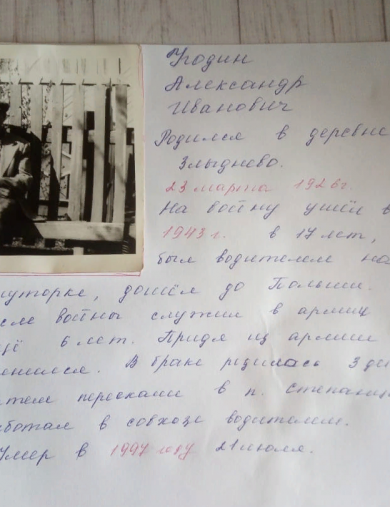 Угодин
Александр
Иванович
Родился в деревне
Злыднево.
23 марта 1926г
На войну ушёл в
1943 г. в 17 лет,
был водителем на
дошёл до Польши.
войны служил в армии
6 лет. Придя из армии
В браке родилось 3
переехали в п.
в совхозе водителем.
Умер в 1997 году 21 июля.